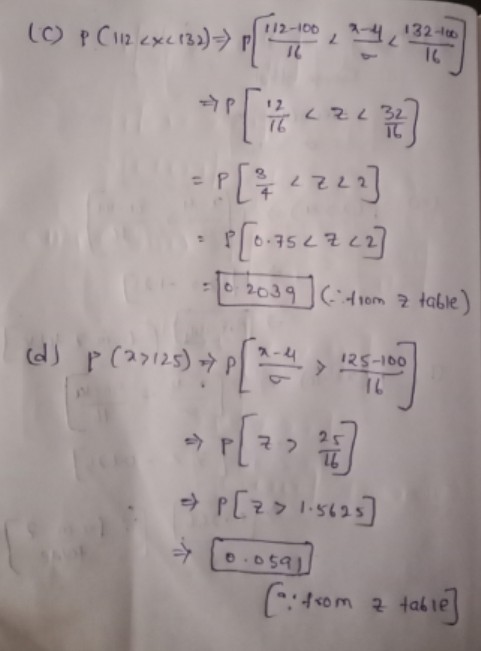 (c) P(112<x<132) ⇒ P[112-100/16 < x-μ/σ < 132-100/16]
⇒ P[12/16 < z < 32/16]
= P[3/4 < z < 2]
= P[0.75 < z < 2]
= 0.2039 (∵ from z table)
(d) P(x>125) ⇒ P[x-μ/σ > 125-100/16]
⇒ P[z > 25/16]
⇒ P[z > 1.5625]
⇒ 0.0591
[∵ from z table]